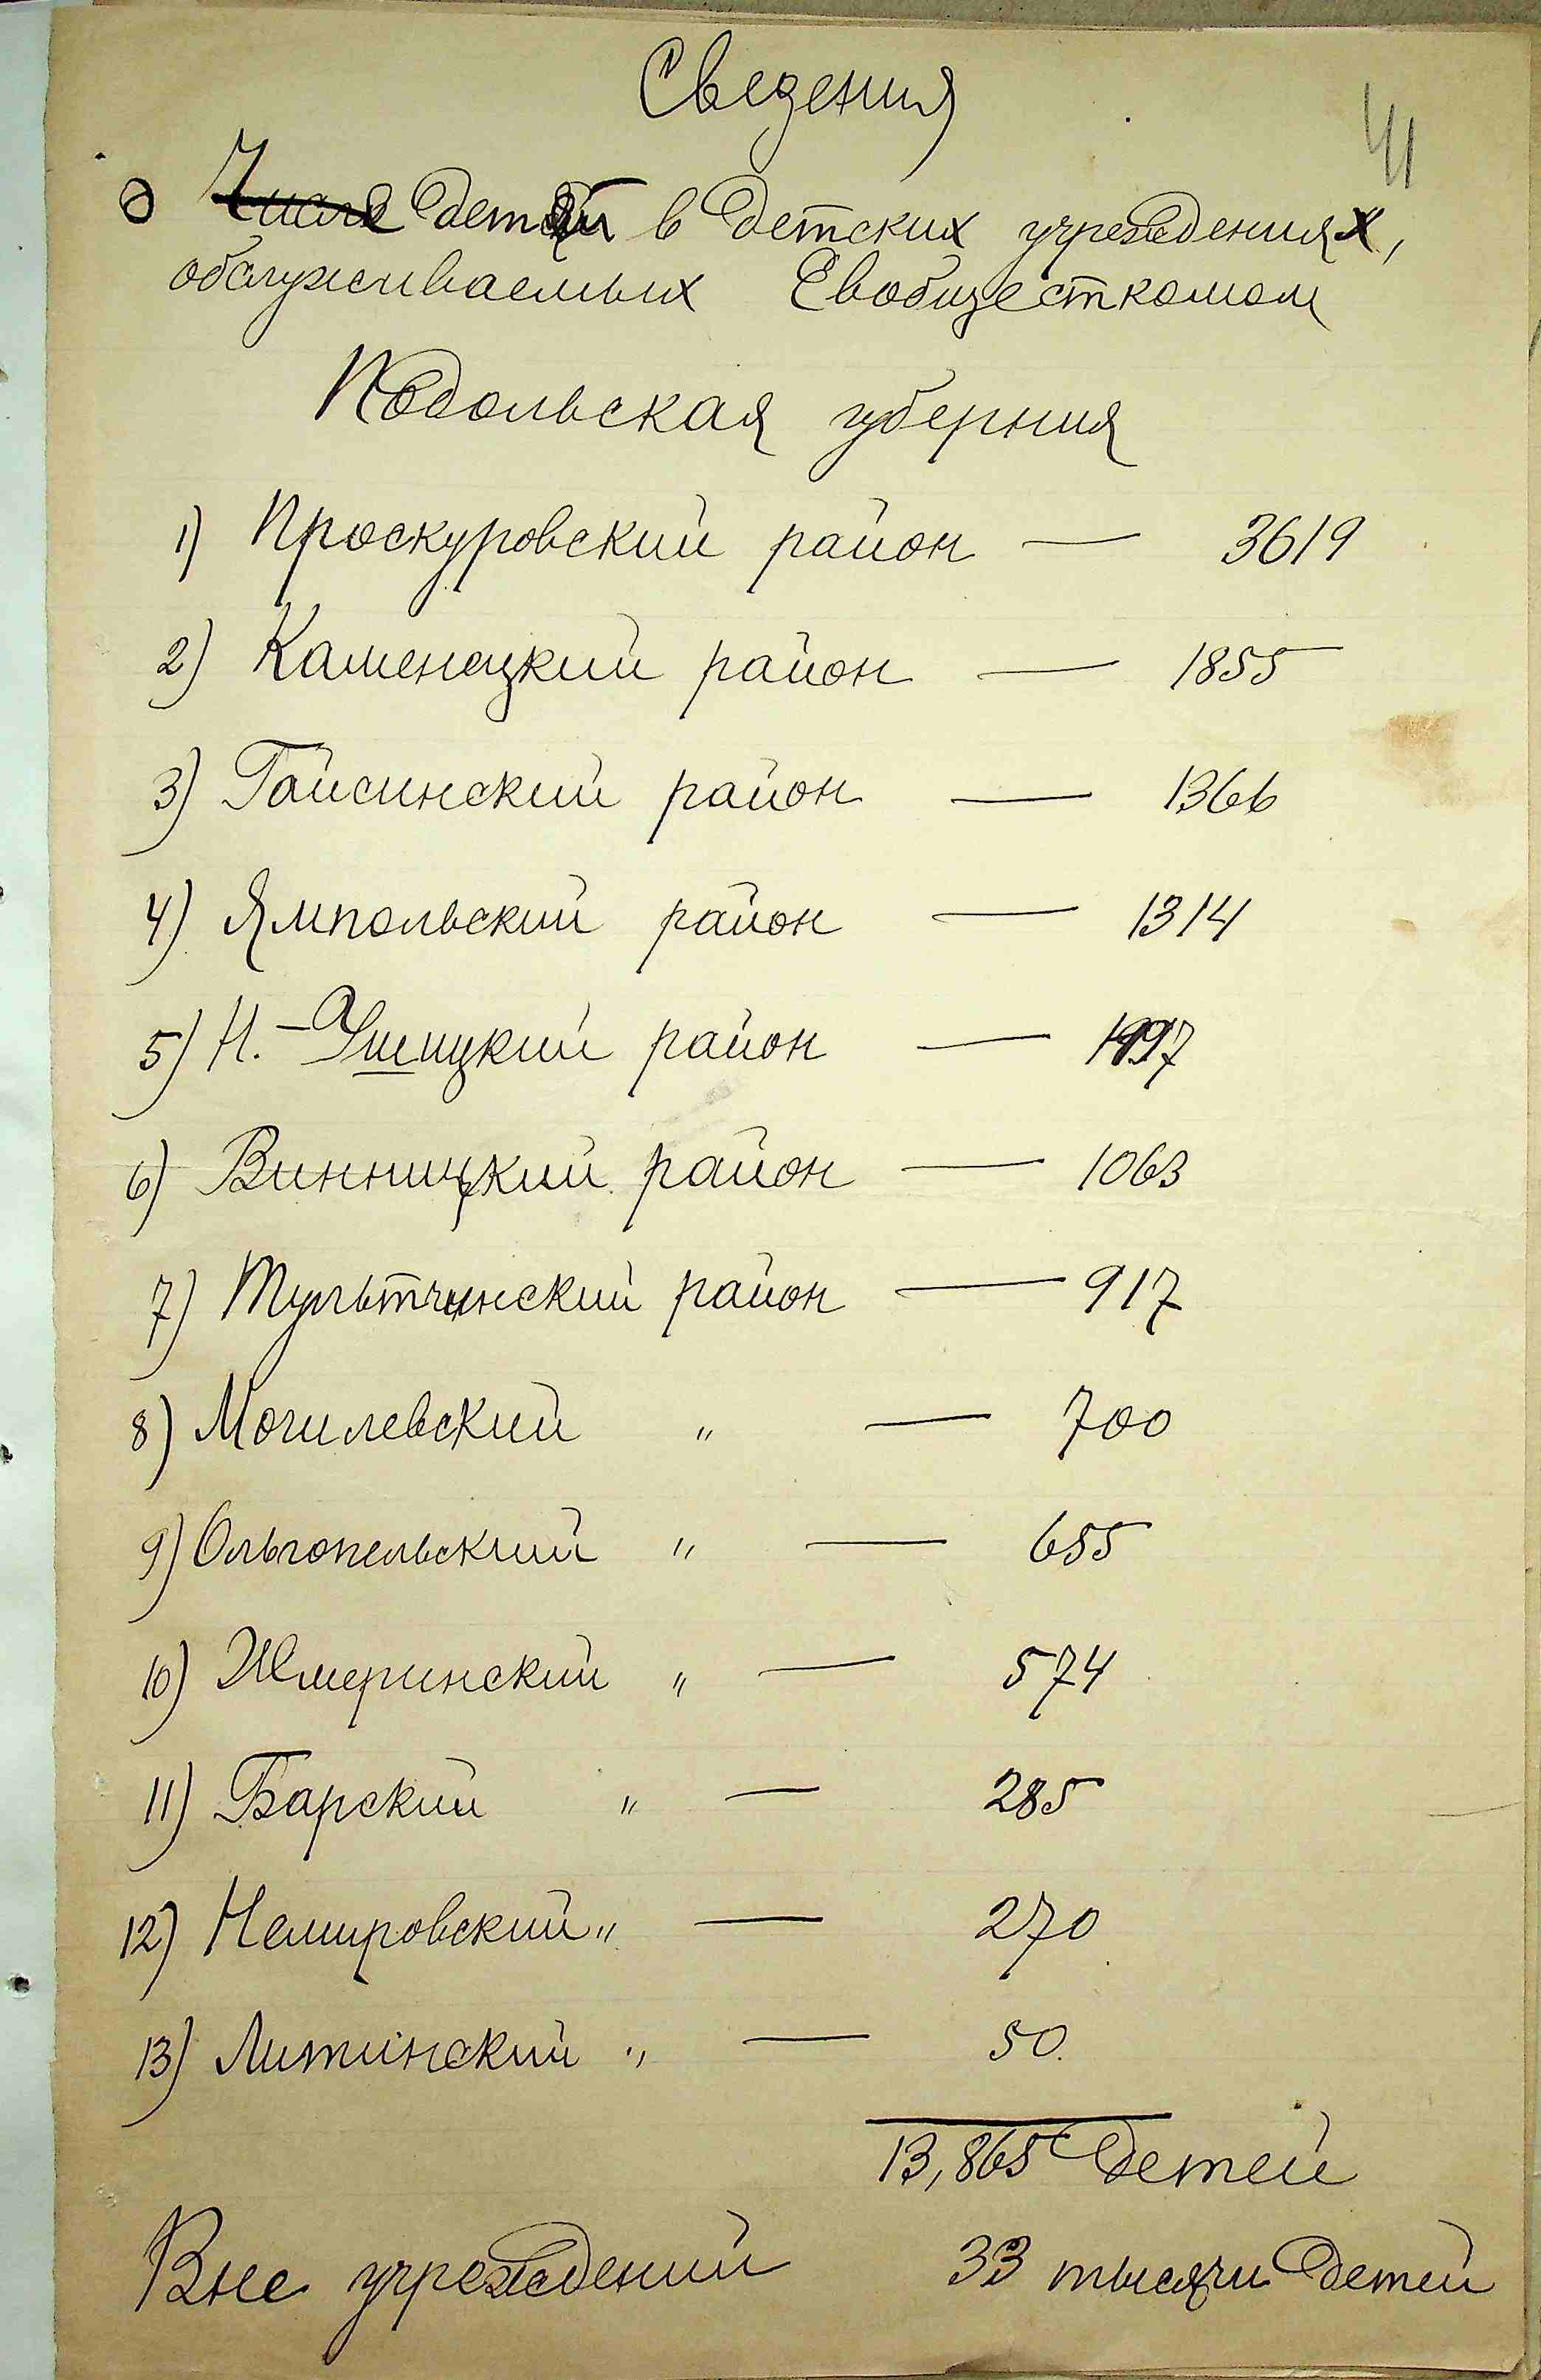 Сведения
41
о Числе детей в детских учреждениях,
обслуживаемых Евобщесткомом
Подольская губерния
1) Проскуровский район — 3619
2) Каменецкий район — 1855
3) Гайсинский район — 1366
4) Ямпольский район — 1314
5) Н.-Ушицкий район — 1197
6) Винницкий район — 1063
7) Тультчинский район — 917
8) Могилевский " — 700
9) Ольгопольский " — 655
10) Жмеринский " — 574
11) Барский " — 285
12) Немировский " — 270
13) Литинский " — 50.
13,865 детей
Вне учреждений 33 тысячи детей